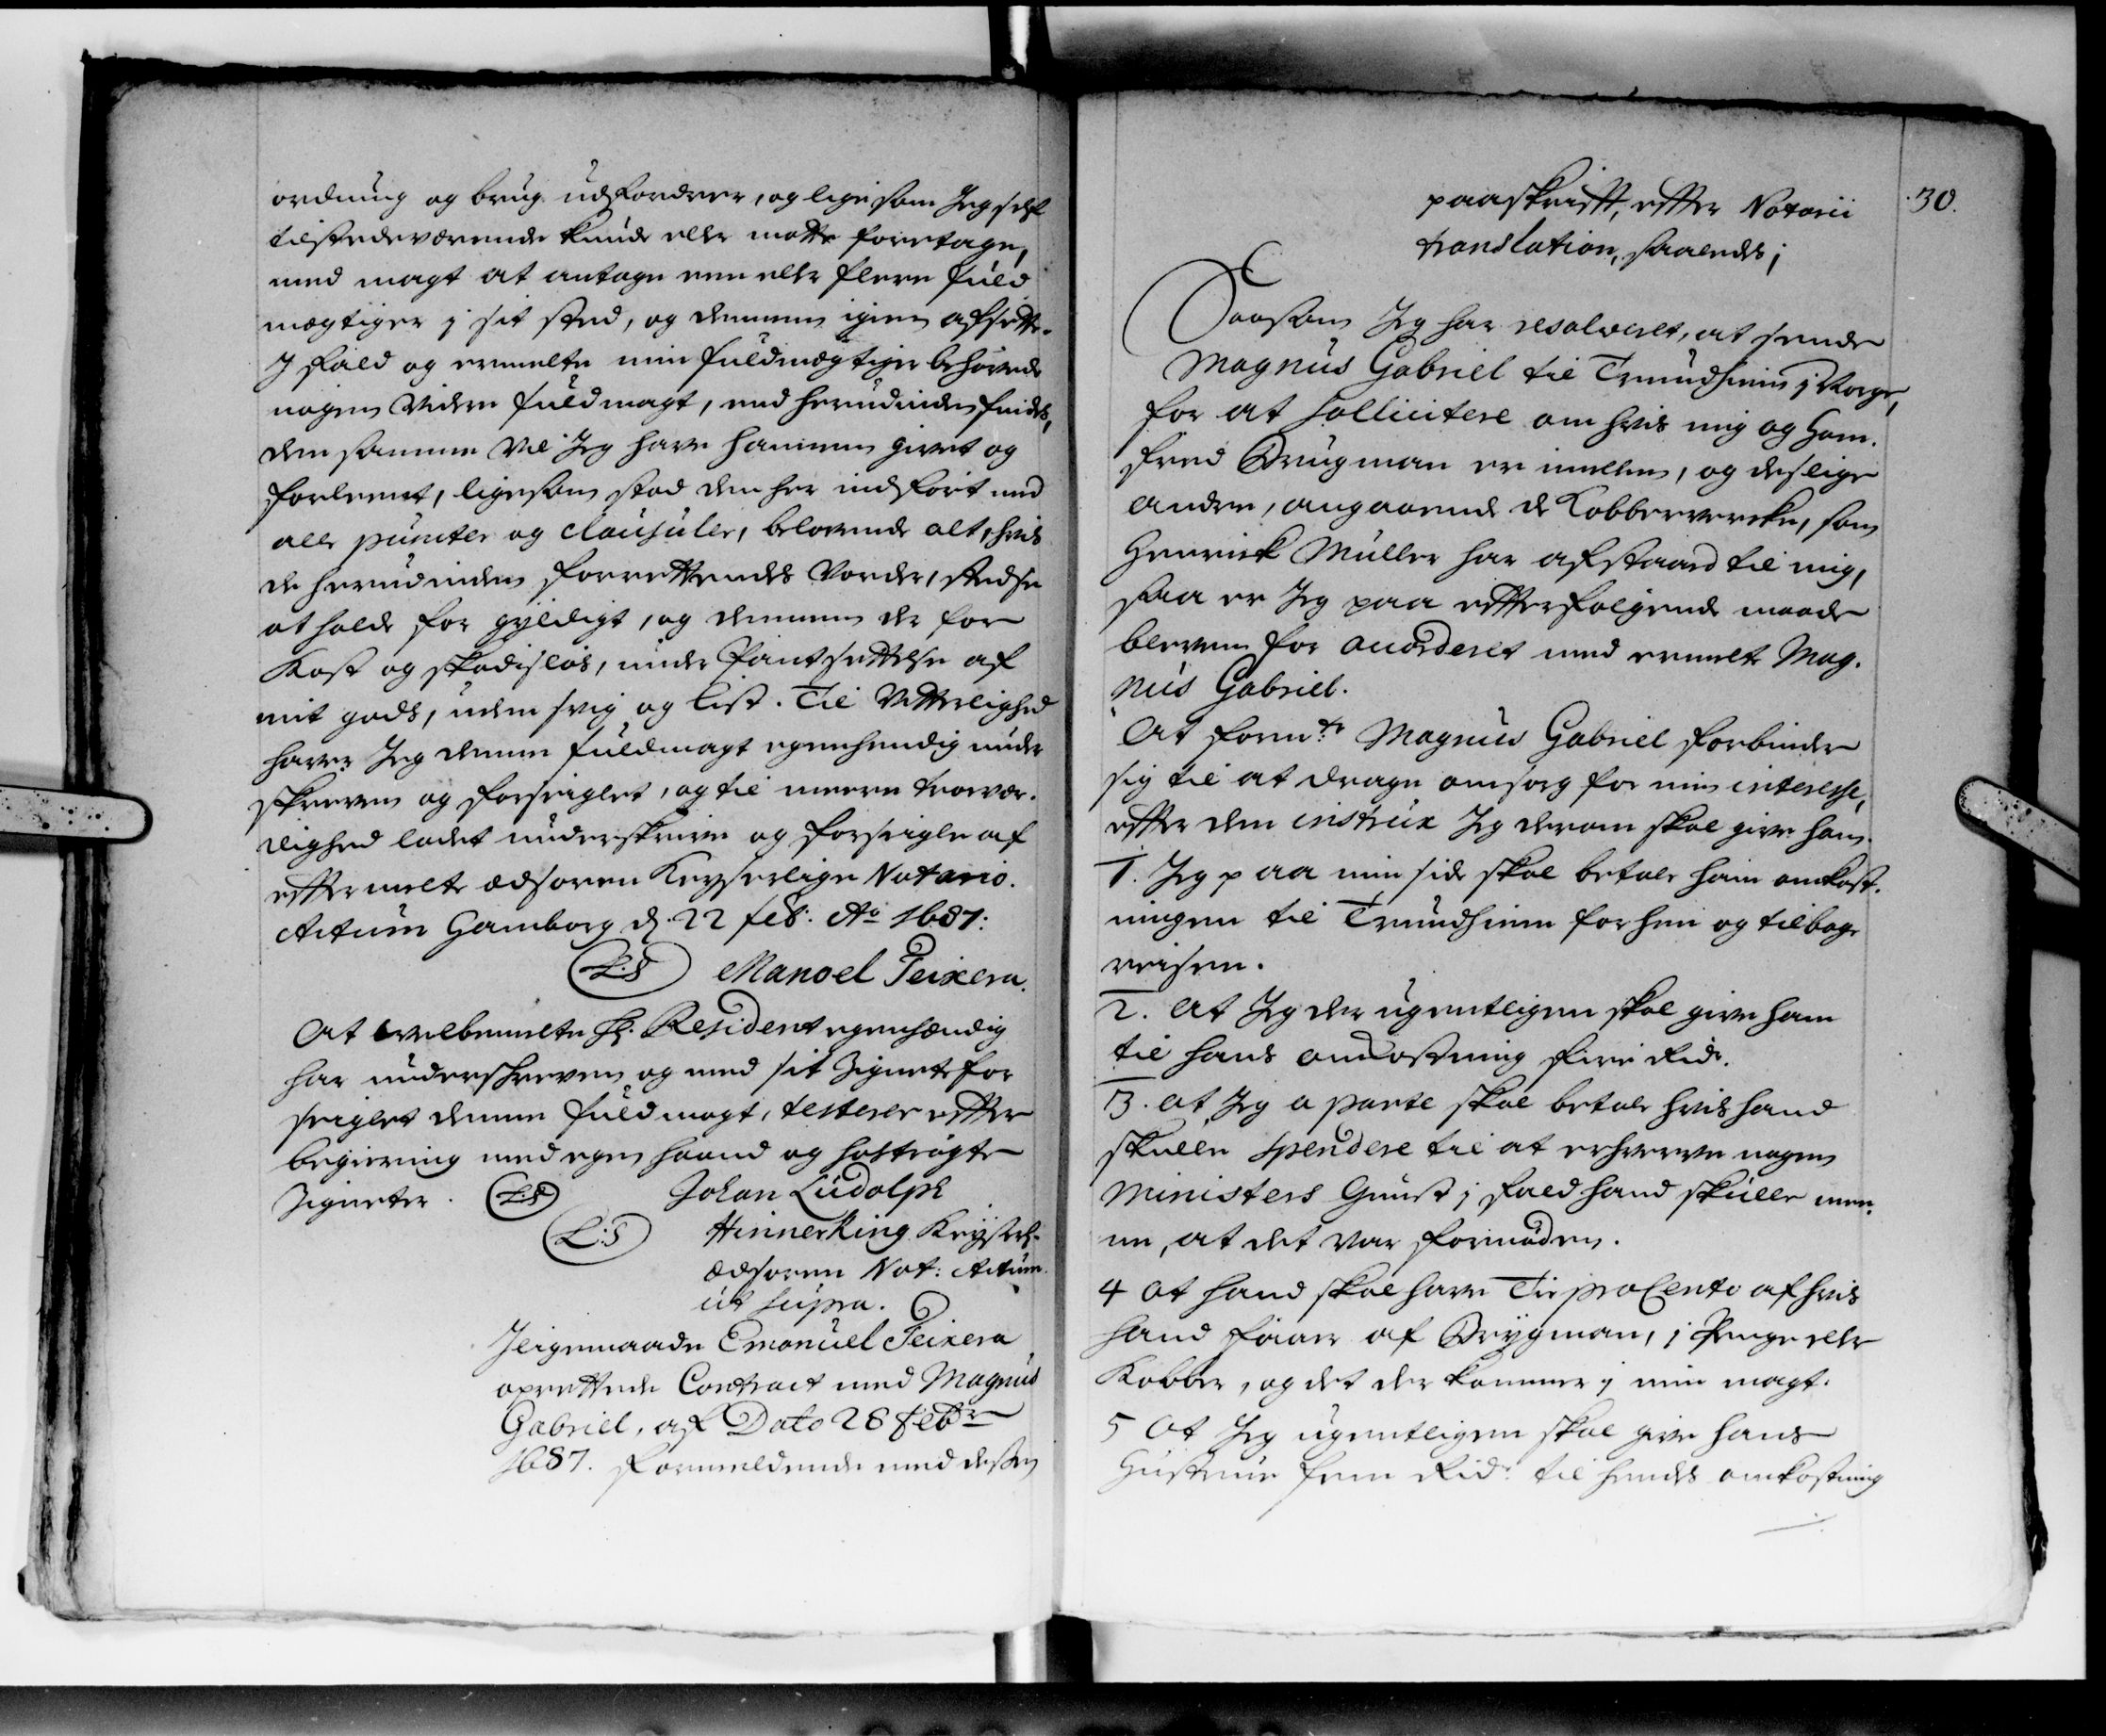 ordnung og brug udfordrer, og ligesom Jeg self
tilstedeværende kunde eller motte foretage,
med magt at antage een eller fleere fuld
mægtiger j sit sted, og dennem igien afsette.
J fald og ermelte min fuldmægtige behøvede
nogen Videre fuldmagt, end herudinden findes,
den samme Vil Jeg have hannem givet og
forleent, ligesom stod den her indført med
alle puncter og clausuler, belovende alt, hvis
de herudinden forrettendes Vorder, stedse
at holde for gyldigt, og dennem der for
Kost og skadisløs, under Pantsettelse af
mit gods, uden svig og List. Til Vitterlighed
haver Jeg denne fuldmagt egenhendig under
skreven og forseiglet, og til meere troevær.
dighed ladet underskrive og forseigle af
eftermelte ædsoren Keyserlige Notario.
Actum Hamborg d. 22 feb: Ao 1687:
L.S Manoel Teixera.
At Velbemelte Hr. Resident egenhændig
har underschreven og med sit Zignete for
seiglet denne fuldmagt, testerer efter
begiering med egen haand og hostrøgte
Zigneter. L.S Johan Ludolph
L:S Hinnerking Keyserl.
ædsoren Not: Actum
ut supra.
Jligemaade Emanuel Teixera
oprettede Contract med Magnus
Gabriel, af Dato 28 Febr
1687. formeldende med dessen
30.
paaskrifft, efter Notarii
translation, saaledes;
Saasom Jeg har resolveret, at sende
Magnus Gabriel til Trundhiem j Norge,
for at sollicitere om hvis mig og Hom.
fred Brugman er imellem, og deslige
anden, angaaende de Kobberverker, som
Henrick Müller har afstaaed til mig,
saa er Jeg paa efterfølgende maade
bleven for accorderet med ermelte Mag.
nus Gabriel.
At formte Magnus Gabriel forbinder
sig til at drage omsorg for min interesse,
efter den instrux Jeg derom skal give ham.
1. Jeg paa min side skal betale ham omkost.
ningen til Trundhiem for hen og tilbage
reisen.
2. At Jeg der ugentligen skal give ham
til hans omkostning fire Rdr.
3. at Jeg a parte skal betale hvis hand
skulle spendere til at erhverve nogen
Ministers Gunst j fald hand skulle mee.
ne, at det var fornøden.
4 At hand skal have Tie procento af hvis
hand faaer af Brugman, j Penge eller
Kobber, og det der kommer j min magt.
5 At Jeg ugentligen skal give hans
Hustrue fem Rdr. til hendes omkostning